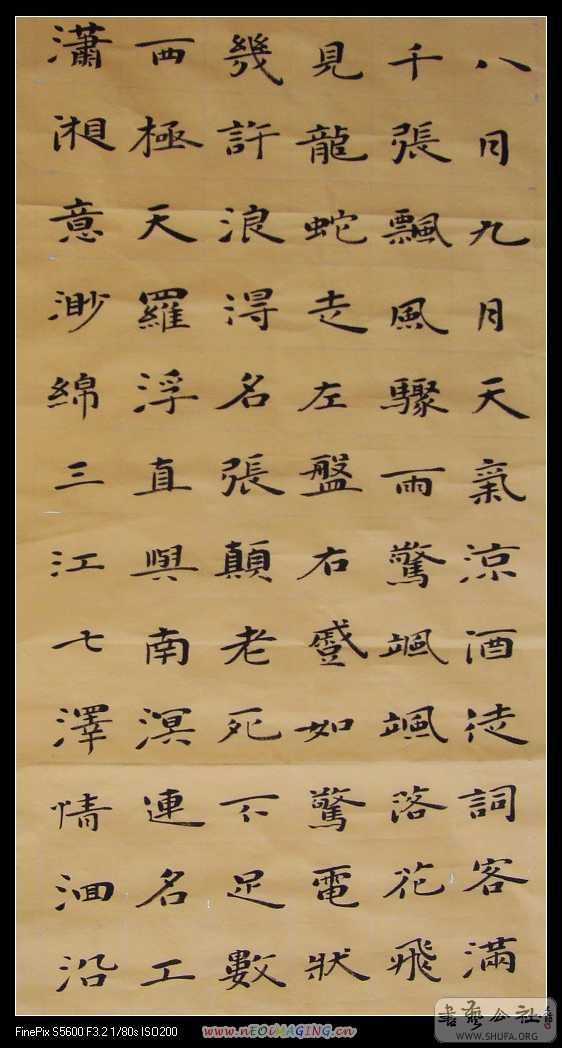 八月九月天氣涼酒徒詞客滿
千張飄風驟雨驚颯颯落花飛
見龍蛇走左盤右蹙如驚電狀
幾許浪得名張顛老死不足數
西極天羅浮直與南溟連名工
瀟湘意渺綿三江七澤情洄沿
書藝公社
WWW.SHUFA.ORG
FinePix S5600 F3.2 1/80s ISO200
www.nEOiMAGiNG.cn